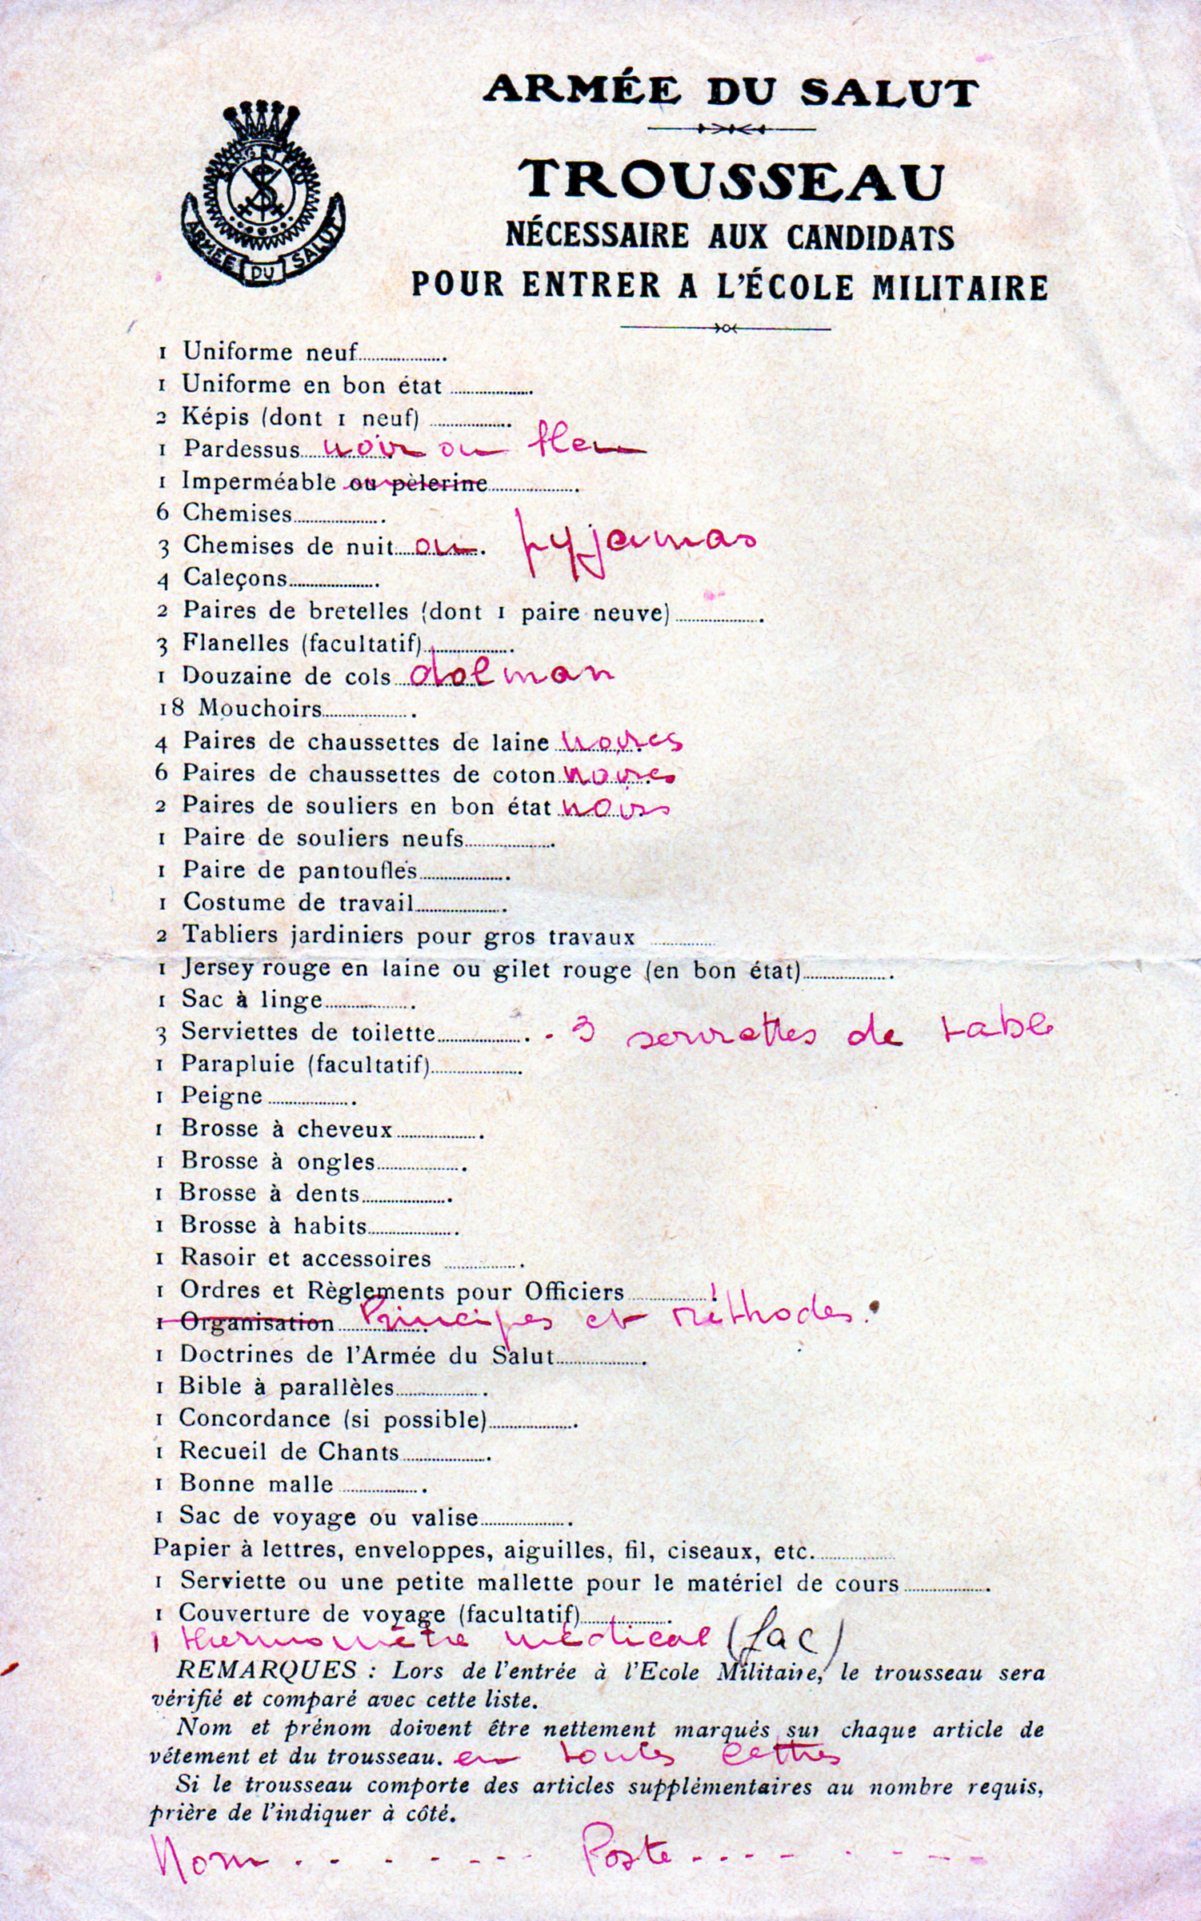 ARMÉE DU SALUT
SANG ET FEU
ARMÉE DU SALUT
TROUSSEAU
NÉCESSAIRE AUX CANDIDATS
POUR ENTRER A L'ÉCOLE MILITAIRE
1 Uniforme neuf
1 Uniforme en bon état
2 Képis (dont 1 neuf)
1 Pardessus noir ou bleu
1 Imperméable ou pèlerine
6 Chemises
3 Chemises de nuit ou pyjamas
4 Caleçons
2 Paires de bretelles (dont 1 paire neuve)
3 Flanelles (facultatif)
1 Douzaine de cols dolman
18 Mouchoirs
4 Paires de chaussettes de laine noires
6 Paires de chaussettes de coton noires
2 Paires de souliers en bon état noirs
1 Paire de souliers neufs
1 Paire de pantoufles
1 Costume de travail
2 Tabliers jardiniers pour gros travaux
1 Jersey rouge en laine ou gilet rouge (en bon état)
1 Sac à linge
3 Serviettes de toilette - 3 serviettes de table
1 Parapluie (facultatif)
1 Peigne
1 Brosse à cheveux
1 Brosse à ongles
1 Brosse à dents
1 Brosse à habits
1 Rasoir et accessoires
1 Ordres et Règlements pour Officiers
1 Organisation Principes et Méthodes.
1 Doctrines de l'Armée du Salut
1 Bible à parallèles
1 Concordance (si possible)
1 Recueil de Chants
1 Bonne malle
1 Sac de voyage ou valise
Papier à lettres, enveloppes, aiguilles, fil, ciseaux, etc.
1 Serviette ou une petite mallette pour le matériel de cours
1 Couverture de voyage (facultatif)
1 thermomètre médical (fac)
REMARQUES : Lors de l'entrée à l'Ecole Militaire, le trousseau sera
vérifié et comparé avec cette liste.
Nom et prénom doivent être nettement marqués sur chaque article de
vétement et du trousseau. en toutes lettres
Si le trousseau comporte des articles supplémentaires au nombre requis,
prière de l'indiquer à côté.
Nom . - - - - - - Poste - - - - - - - -